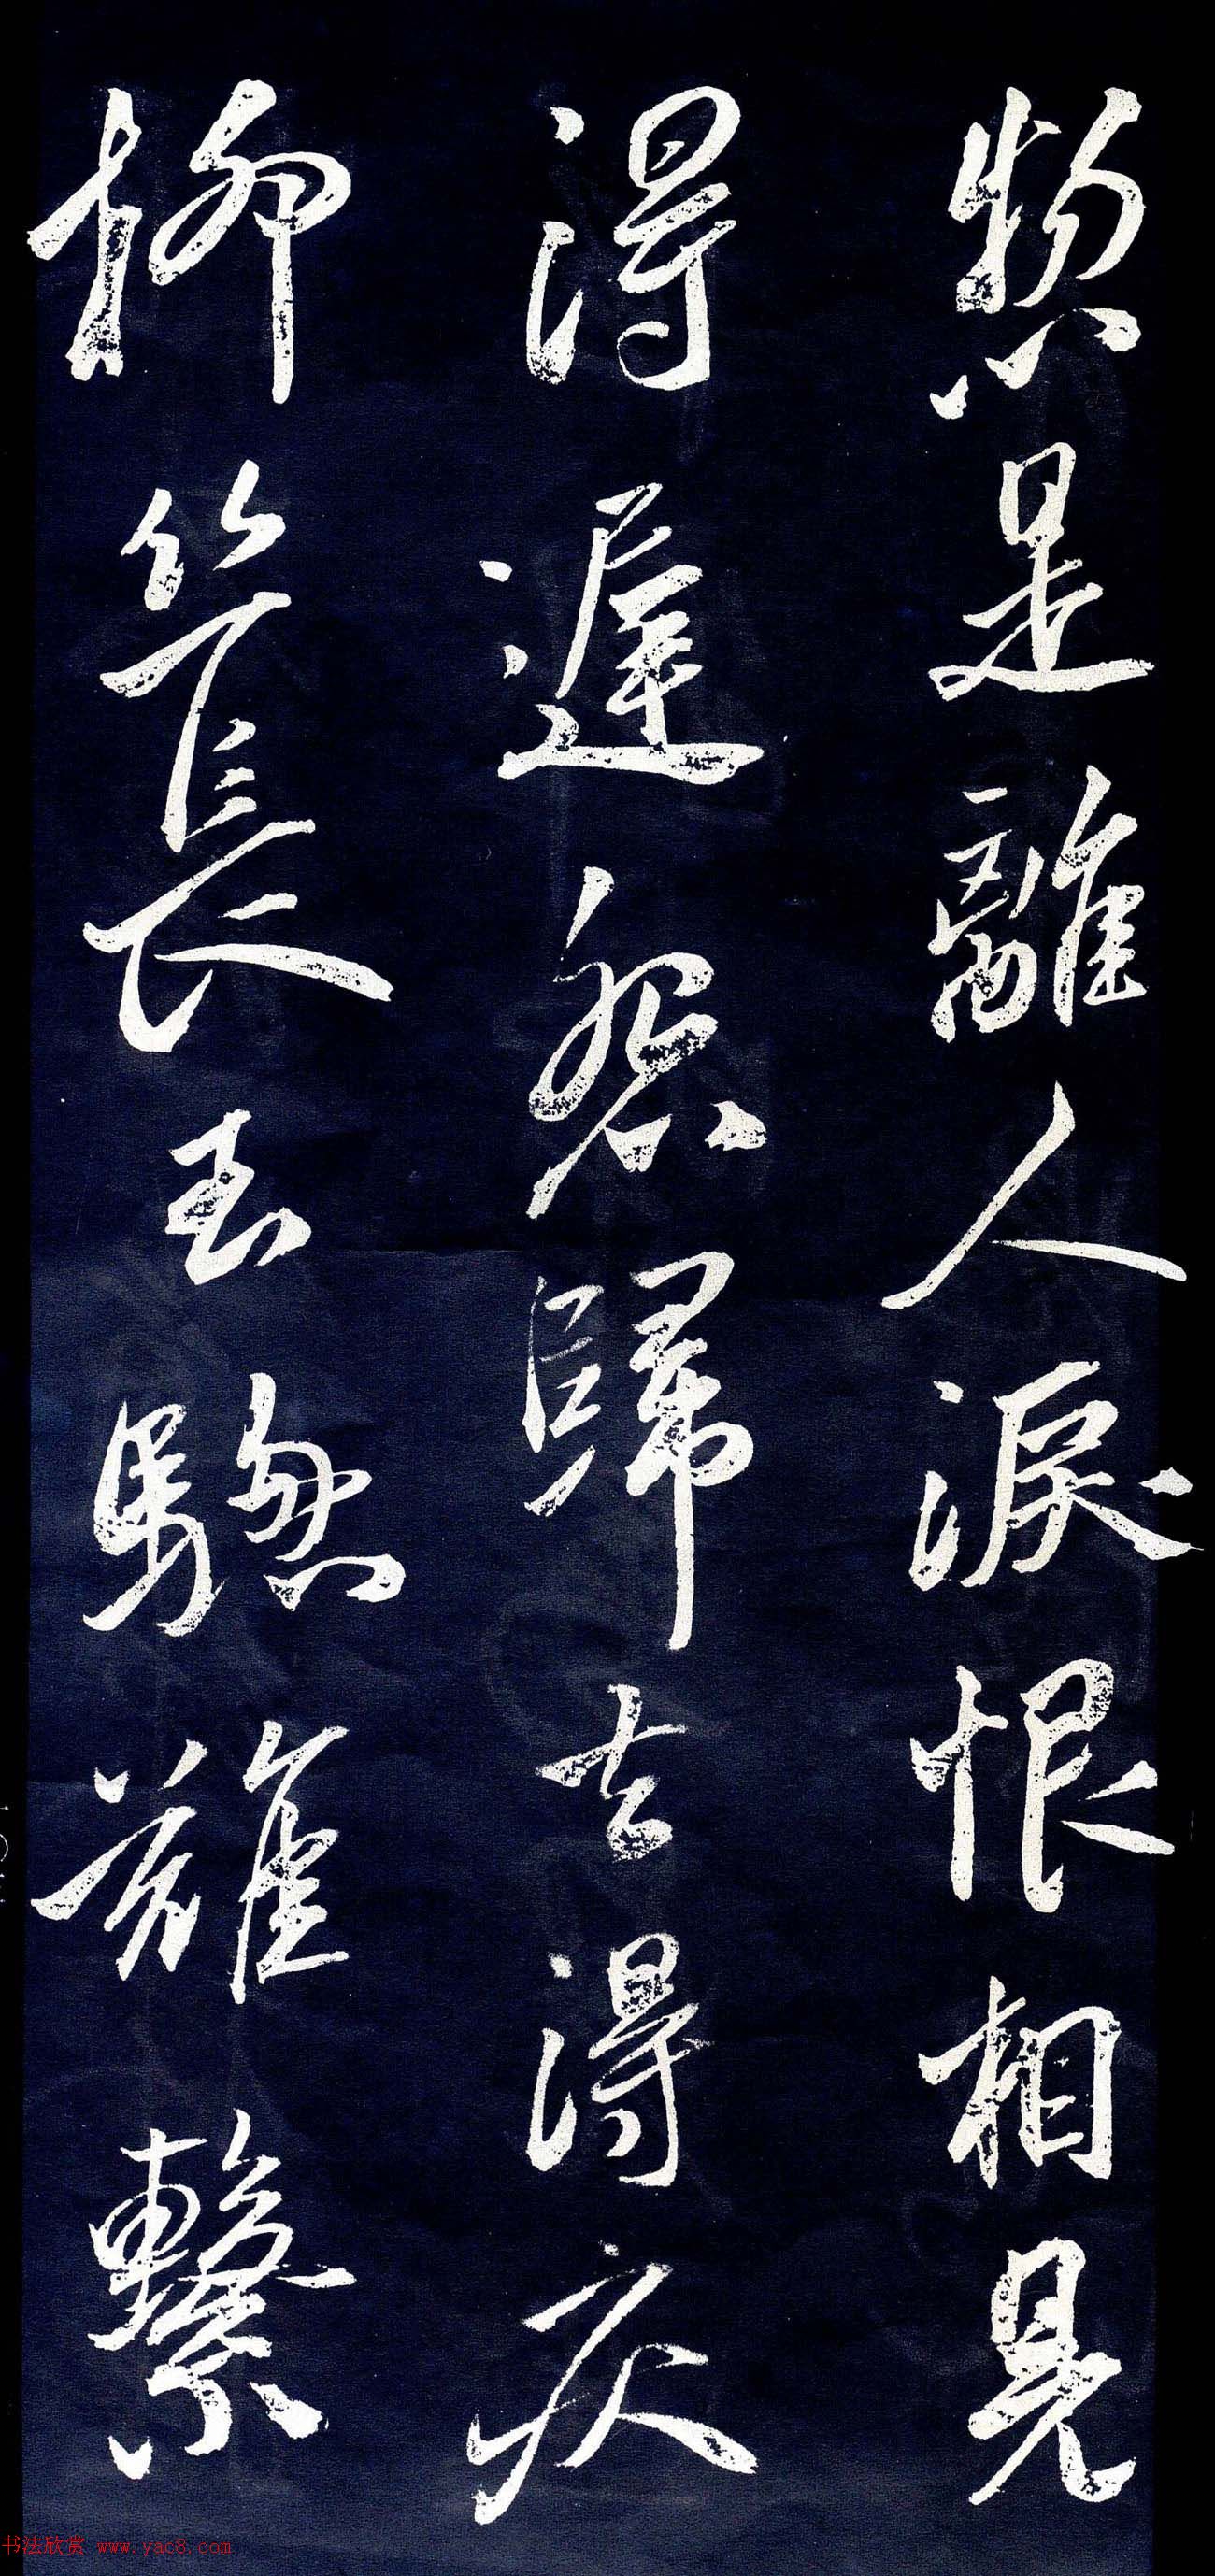 揔是離人淚恨相見
得遲怨歸去得疾
柳絲長玉驄難繫
书法欣赏 www.yac8.com